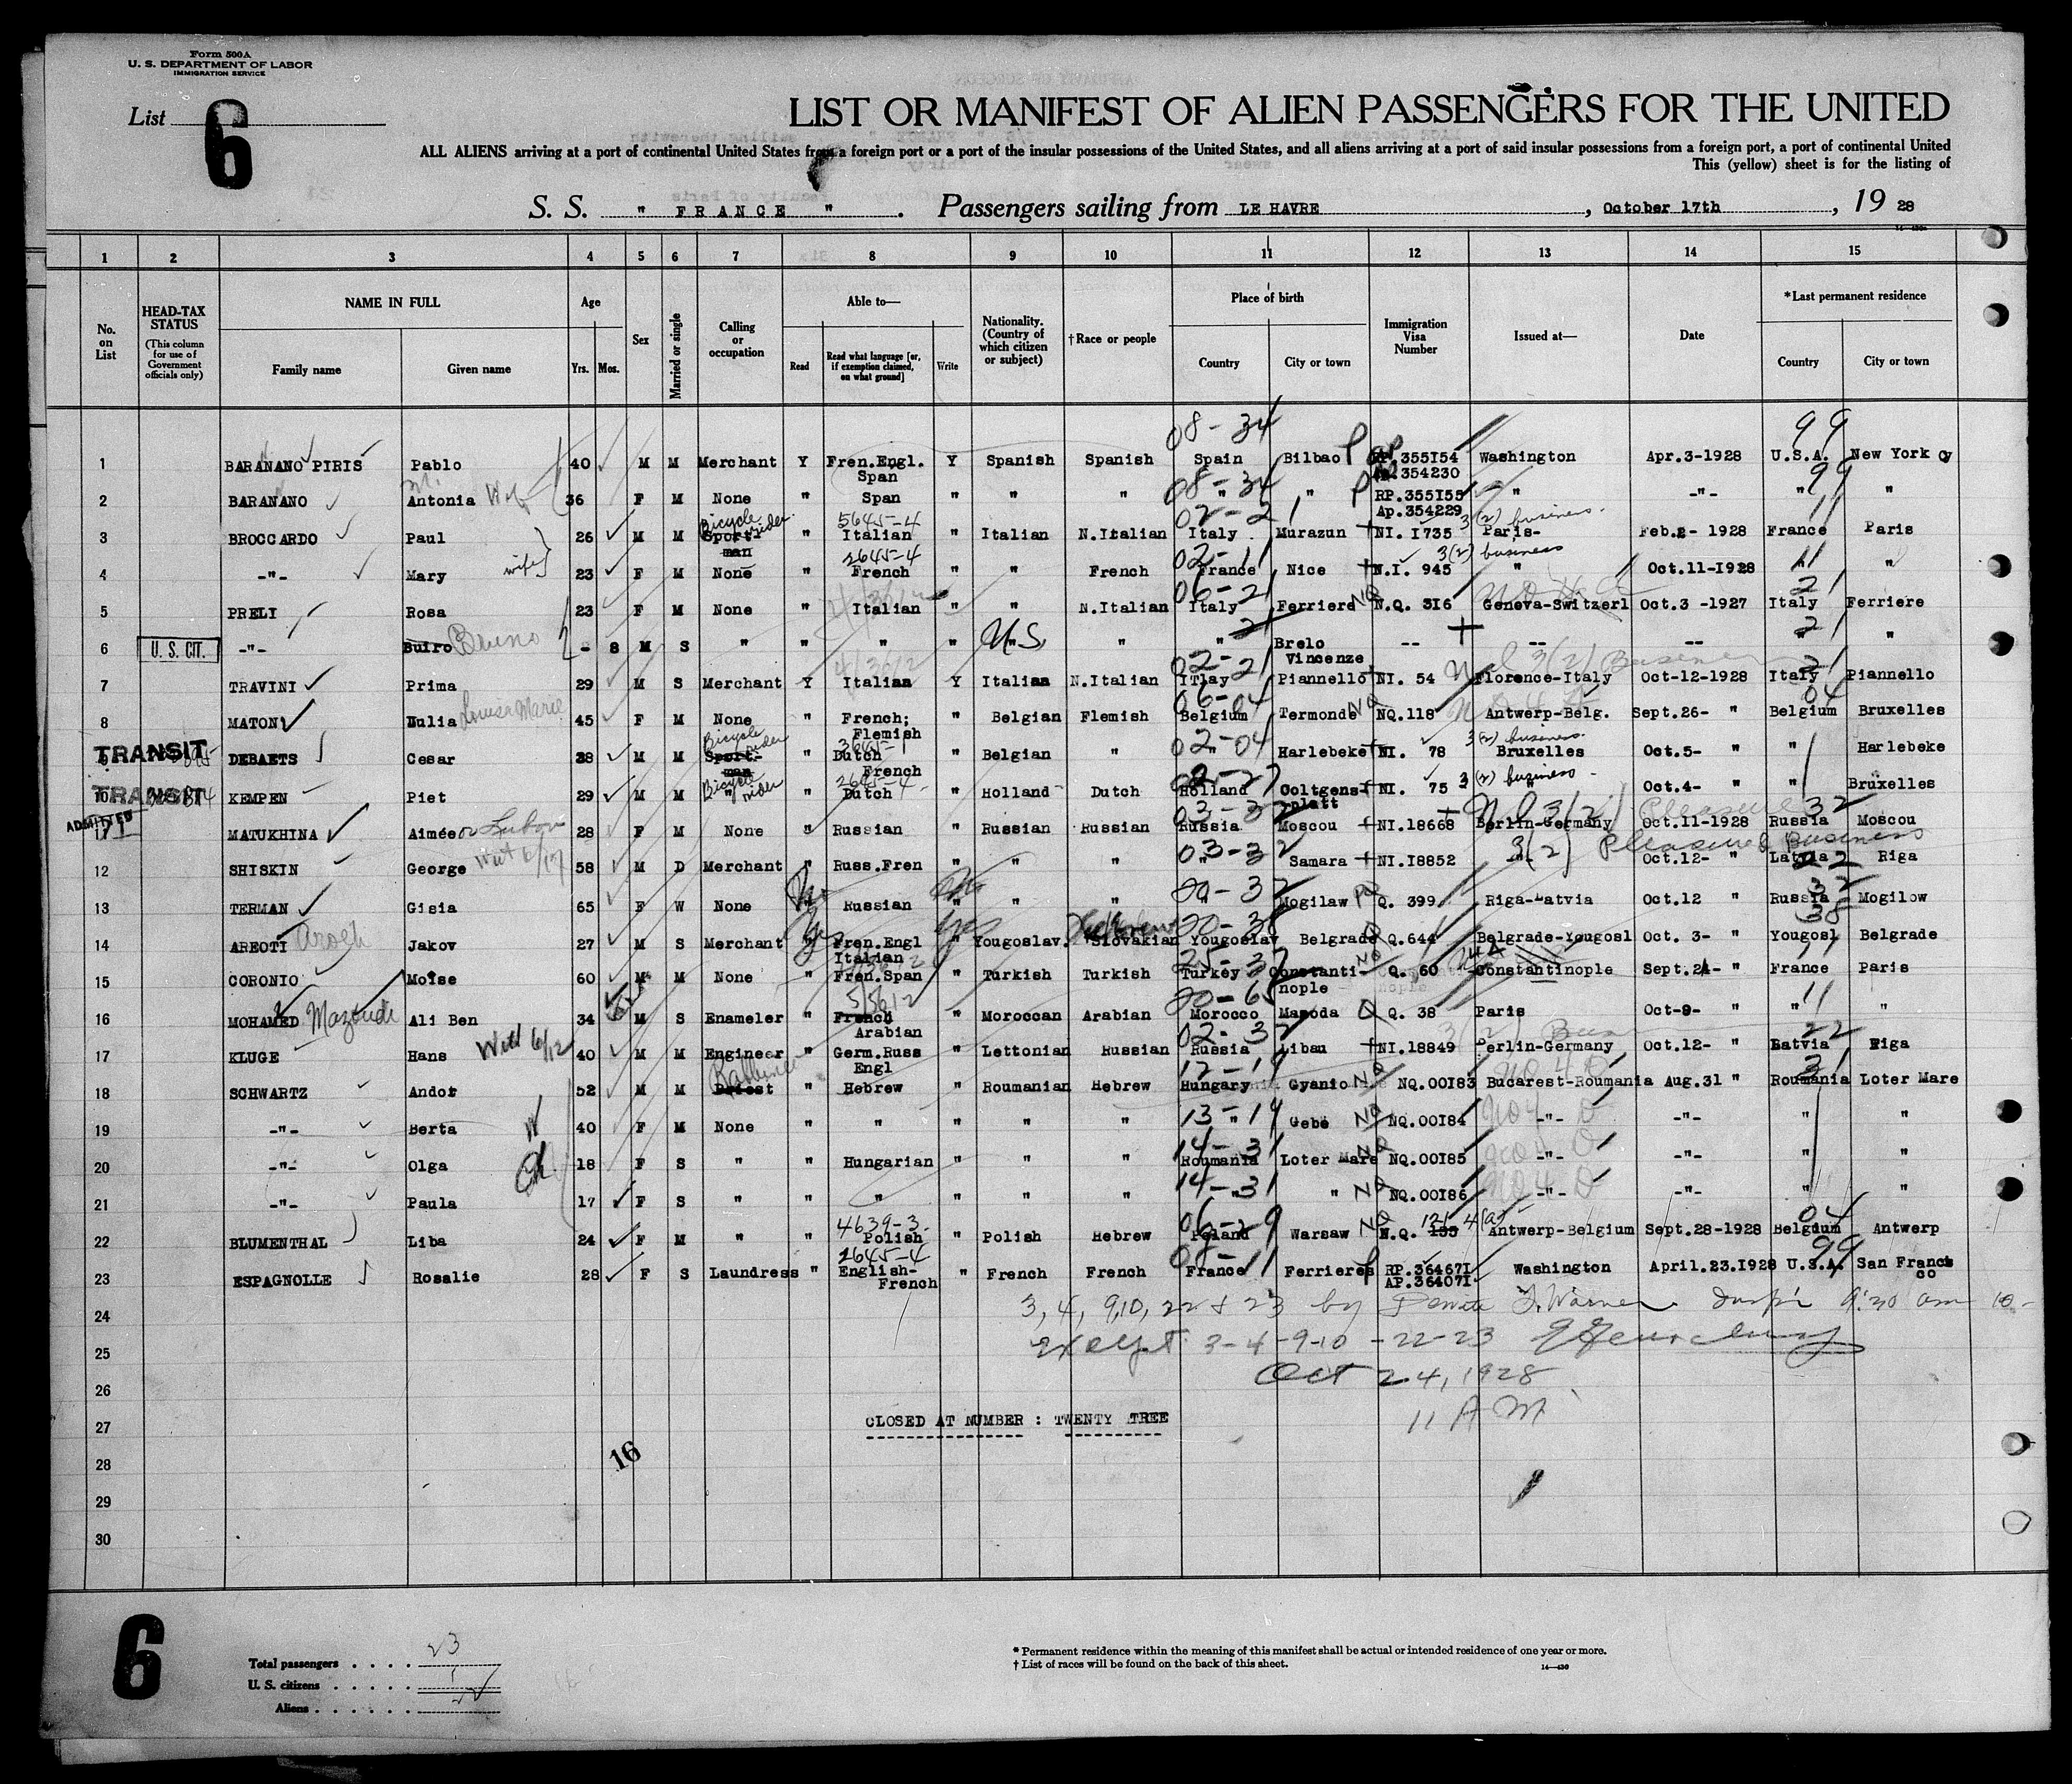 Form 500A
U. S. DEPARTMENT OF LABOR
IMMIGRATION SERVICE
List 6
LIST OR MANIFEST OF ALIEN PASSENGERS FOR THE UNITED
ALL ALIENS arriving at a port of continental United States from a foreign port or a port of the insular possessions of the United States, and all aliens arriving at a port of said insular possessions from a foreign port, a port of continental United
This (yellow) sheet is for the listing of
S. S. " FRANCE " . Passengers sailing from LE HAVRE , October 17th , 19 28
1 2 3 4 5 6 7 8 9 10 11 12 13 14 15
No. on List
HEAD-TAX STATUS (This column for use of Government officials only)
NAME IN FULL
Family name Given name
Age
Yrs. Mos.
Sex
Married or single
Calling or occupation
Able to—
Read
Read what language [or, if exemption claimed, on what ground]
Write
Nationality. (Country of which citizen or subject)
†Race or people
Place of birth
Country City or town
Immigration Visa Number
Issued at—
Date
*Last permanent residence
Country City or town
08-34 99
1 BARANANO PIRIS Pablo 40 M M Merchant Y Fren.Engl. Span Y Spanish Spanish Spain Bilbao P RP.355154 Ap.354230 Washington Apr.3-1928 U.S.A. New York Cy
08-34 99
2 BARANANO Antonia Wif 36 F M None " Span " " " " " P RP.355155 Ap.354229 -"- -"- " "
3 BROCCARDO Paul 26 M M Sportman Bicycle rider " 5645-4 Italian " Italian N.Italian 02-21 Italy Murazun NI. 1735 3(2) business Paris- Feb.2- 1928 France Paris
4 -"- Mary wife 23 F M None " 2645-4 French " " French 02-11 France Nice N.I. 945 3(2) business " Oct.11-1928 " "
5 PRELI Rosa 23 F M None " Italian " " N.Italian 06-21 Italy Ferriere NQ N.Q. 316 Geneva-Switzerl Oct.3 -1927 Italy Ferriere
6 U. S. CIT. -"- Buiro Bruno - 8 M S " " " " U.S. " " Brelo Vincenze -- -- -- " "
7 TRAVINI Prima 29 M S Merchant Y Italian Y Italian N.Italian 02-21 ITlay Piannello NI. 54 3(2) Business Florence-Italy Oct-12-1928 Italy Piannello
8 MATON Julia Louise Marie 45 F M None " French; Flemish " Belgian Flemish 06-04 Belgium Termonde NQ NQ.118 Antwerp-Belg. Sept.26- " Belgium Bruxelles
TRANSIT 9 DEBAETS Cesar 28 M M Sportman Bicycle rider " 3645-1 Dutch French " Belgian " 02-04 " Harlebeke NI. 78 3(2) business Bruxelles Oct.5- " " Harlebeke
TRANSIT 10 KEMPEN Piet 29 M M " Bicycle rider " 2645-4 Dutch " Holland Dutch Holland Coltgensplatt NI. 75 3(2) business " Oct.4- " " Bruxelles
ADMITTED 11 MATUKHINA Aimée 28 F M None " Russian " Russian Russian 03-32 Russia Moscou NI.18668 3(2) Pleasure Berlin-Germany Oct.11-1928 Russia Moscou
12 SHISKIN George 58 M D Merchant " Russ.Fren " " " 03-32 " Samara NI.18852 3(2) Pleasure & Business -"- Oct.12- " Latvia Riga
13 TERMAN Gisia 65 F W None No Russian No " " 00-32 " Mogilaw Q. 399 Riga-Latvia Oct.12 " Russia Mogilow
14 AREOTI Aroeti Jakov 27 M S Merchant Yes Fren.Engl Italian Yes Yougoslav. Slovakian Hebrew 00-38 Yougoslav Belgrade Q.644 Belgrade-Yougosl Oct. 3- " Yougosl Belgrade
15 CORONIO Moïse 60 M None " Fren.Span " Turkish Turkish 25-37 Turkey Constantinople NQ Q. 60 Constantinople Sept.24- " France Paris
16 MOHAMED Ali Ben 34 M S Enameler " French Arabian " Moroccan Arabian 00-65 Morocco Mamoda Q Q. 38 Paris Oct-9- " " "
17 KLUGE Hans 40 M M Engineer " Germ.Russ Engl " Lettonian Russian 02-32 Russia Libau NI.18849 Berlin-Germany Oct.12- " Latvia Riga
18 SCHWARTZ Andor 52 M M Priest Rabbiner " Hebrew " Roumanian Hebrew Hungary Gyanio NQ NQ.00183 Bucarest-Roumania Aug.31 " Roumania Loter Mare
19 -"- Berta W 40 F M None " " " " " 13-19 " Gebe NQ NQ.00184 -"- -"- " "
20 -"- Olga Ch 18 F S " " Hungarian " " " 14-31 Roumania Loter Mare NQ NQ.00185 -"- -"- " "
21 -"- Paula 17 F S " " " " " " 14-31 " " NQ NQ.00186 -"- -"- " "
22 BLUMENTHAL Liba 24 F M " " 4639-3 Polish " Polish Hebrew 06-29 Poland Warsaw NQ N.Q. 155 121 4(a) Antwerp-Belgium Sept.28-1928 Belgium 04 Antwerp
23 ESPAGNOLLE Rosalie 28 F S Laundress " 2645-4 English-French " French French 08-11 France Ferrieres P RP.364671 AP.364071 Washington April.23.1928 U.S.A. 99 San Francisco
24 3, 4, 9, 10, 22 & 23 by T. Warner Insp'r 9:30 am
25 Except 3-4-9-10-22-23
26 Oct 24, 1928
27 CLOSED AT NUMBER : TWENTY TREE 11 AM
28 16
29
30
6
Total passengers . . . . 23
U. S. citizens . . . . . 1
Aliens . . . . . . 22
* Permanent residence within the meaning of this manifest shall be actual or intended residence of one year or more.
† List of races will be found on the back of this sheet.
14—430